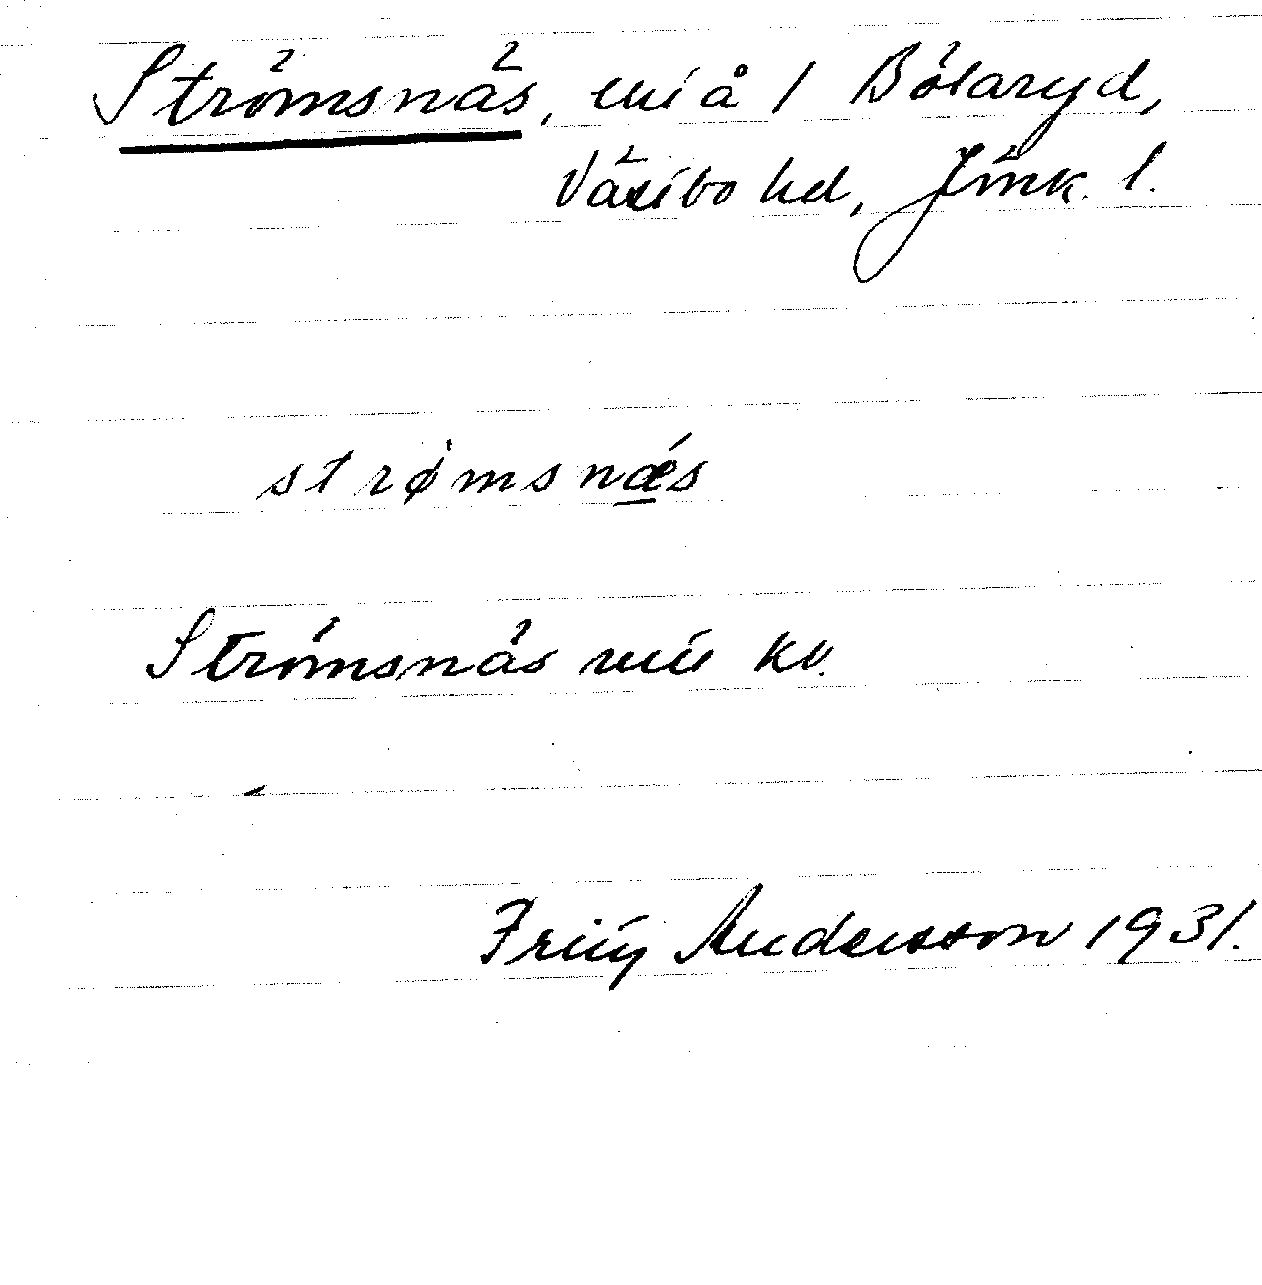 Strömsnäs, uiå / Bölaryd,
Västbo hd, Jönk. l.
strømsnǽs
Strömsnäs kv.
Andersson 1931.